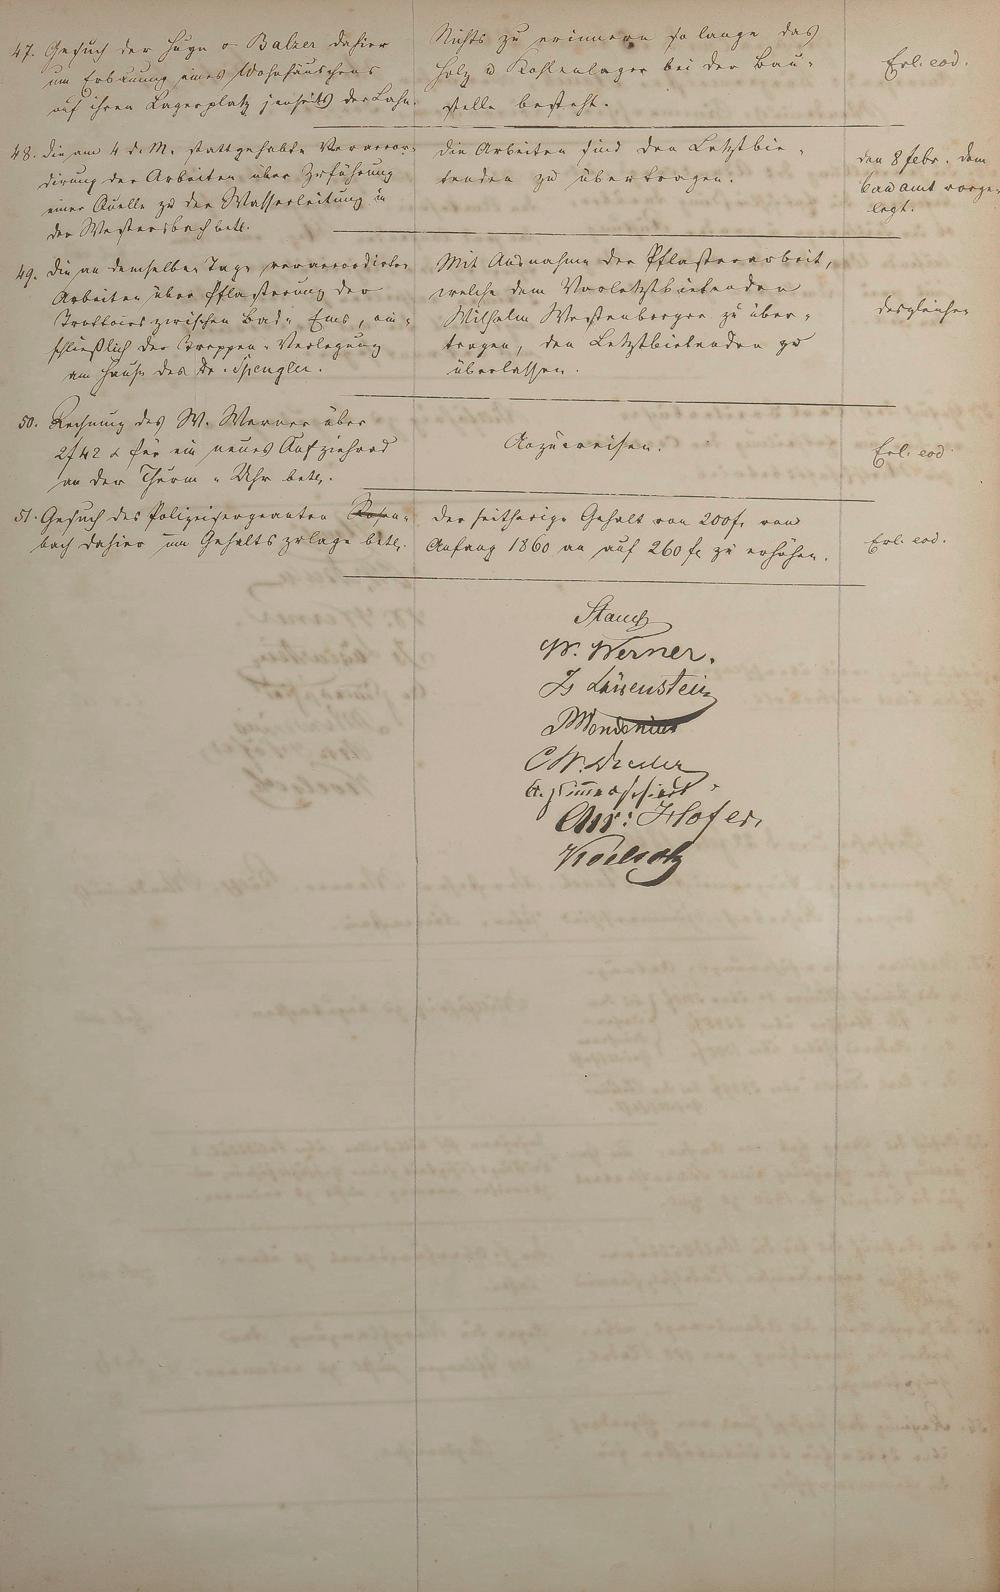 47. Gesuch der Hugo & Balzer dahier
um Erbauung eines Wohnhäuschens
auf ihren Lagerplatz jenseits der Lahn.
Nichts zu erinnern so lange das
Holz u Kohlenlager bei der Bau-
stelle besteht.
Erl. eod.
48. Die am 4 d. M. stattgehabte Veraccor-
dirung der Arbeiten über Zuführung
einer Quelle zu der Wasserleitung in
der Westersbach betr.
Die Arbeiten sind den Letztbie-
tenden zu übertragen.
den 8 febr. dem
bauamt vorge-
legt.
49. Die an demselben Tage veraccordirten
Arbeiten über Pflasterung der
Trottoirs zwischen Bad-Ems, ein-
schließlich der Treppen-Verlegung
am Hause des Dr. Spengler.
Mit Ausnahme der Pflasterarbeit,
welche dem Vorletztbietenden
Wilhelm Westenberger zu über-
tragen, den Letztbietenden zu
überlassen.
desgleichen
50. Rechnung des W. Werner über
2f 42 x für ein neues Aufziehrad
an der Thurm-Uhr betr.
Anzuweisen.
Erl. eod.
51. Gesuch des Polizeisergeanten Rosen-
bach dahier um Gehaltszulage betr.
Der seitherige Gehalt von 200 f. von
Anfang 1860 an auf 260 f. zu erhöhen.
Erl. eod.
W. Werner.
Löwenstein
Chr: Hofer,